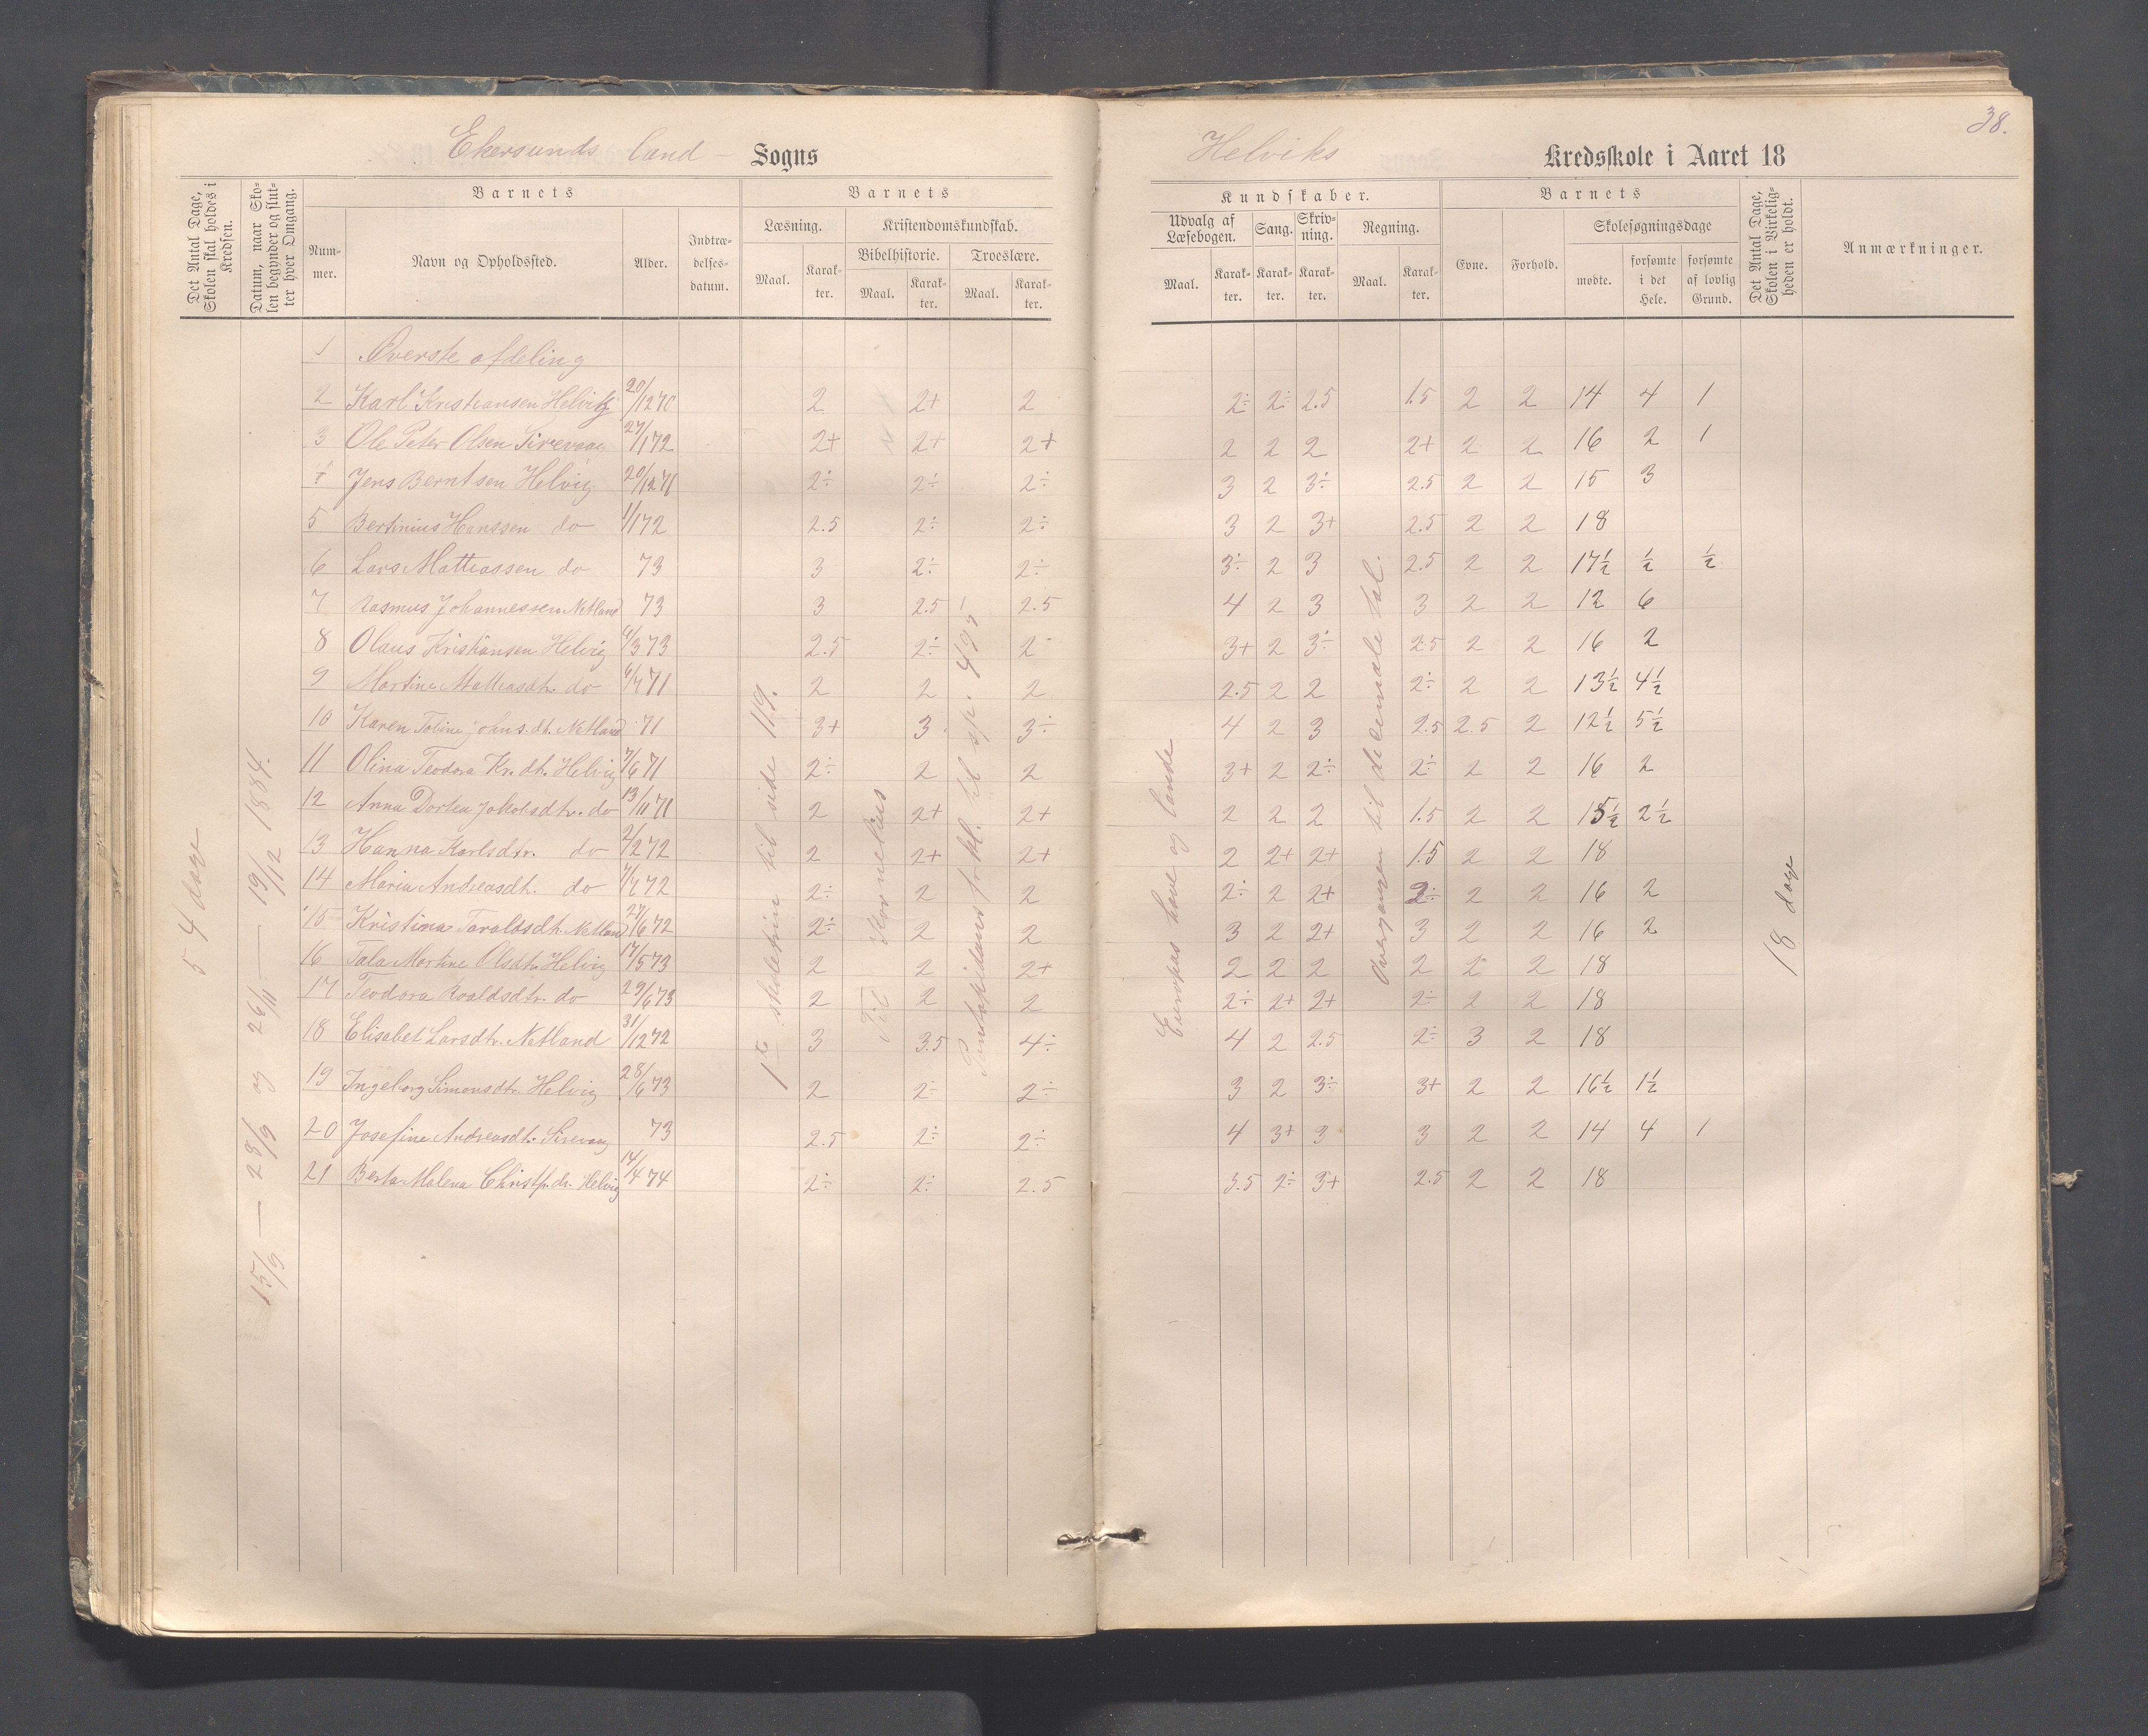 38.
Ekersunds land — Sogns
Helviks Kredsskole i Aaret 18
Det Antal Dage, Skolen skal holdes i Kredsen.
Datum, naar Skolen begynder og slutter hver Omgang.
Barnets
Nummer.
Navn og Opholdssted.
Alder.
Indtrædelsesdatum.
Barnets
Læsning.
Maal.
Karakter.
Kristendomskundskab.
Bibelhistorie.
Maal.
Karakter.
Troeslære.
Maal.
Karakter.
Kundskaber.
Udvalg af Læsebogen.
Maal.
Karakter.
Sang.
Karakter.
Skrivning.
Karakter.
Regning.
Maal.
Karakter.
Barnets
Evne.
Forhold.
Skolesøgningsdage
mødte.
forsømte i det Hele.
forsømte af lovlig Grund.
Det Antal Dage, Skolen i Virkeligheden er holdt.
Anmærkninger.
54 dage
15/9 — 28/9 og 26/11 — 19/12 1884.
1ste skoletrin til side 119.
Til Kornelius
Pontoppidans forkl. til sp. 495
Europas have og lande
Overgangen til decimale tal.
18 dage
1 Øverste afdeling
2 Karl Kristiansen Helvig 20/12 70 2 2+ 2 2÷ 2÷ 2.5 1.5 2 2 14 4 1
3 Ole Peter Olsen Sirevaag 27/1 72 2+ 2+ 2+ 2 2 2 2+ 2 2 16 2 1
4 Jens Berntsen Helvig 20/12 71 2÷ 2÷ 2÷ 3 2 3÷ 2.5 2 2 15 3
5 Bertinius Hanssen do 1/1 72 2.5 2÷ 2÷ 3 2 3+ 2.5 2 2 18
6 Lars Mattiassen do 73 3 2÷ 2÷ 3÷ 2 3 2.5 2 2 17½ ½ ½
7 Rasmus Johannessen Netland 73 3 2.5 2.5 4 2 3 3 2 2 12 6
8 Olaus Kristiansen Helvig 6/3 73 2.5 2÷ 2 3+ 2 3÷ 2.5 2 2 16 2
9 Martine Mattiasdtr. do 6/7 71 2 2 2 2.5 2 2 2÷ 2 2 13½ 4½
10 Karen Tobine Johns.dtr. Netland 71 3+ 3 3÷ 4 2 3 2.5 2.5 2 12½ 5½
11 Olina Teodora Kr. dtr. Helvig 7/6 71 2÷ 2 2 3+ 2 2÷ 2÷ 2 2 16 2
12 Anna Dortea Jakobsdtr. do 13/11 71 2 2+ 2+ 2 2 2 1.5 2 2 15½ 2½
13 Hanna Karlsdtr. do 2/2 72 2 2+ 2+ 2 2+ 2+ 1.5 2 2 18
14 Maria Andreasdtr. do 7/7 72 2÷ 2 2 2÷ 2 2+ 2÷ 2 2 16 2
15 Kristina Taraldsdtr. Netland 27/6 72 2÷ 2 2 3 2 2+ 3 2 2 16 2
16 Tala Martine Olsdtr. Helvig 17/5 73 2 2 2+ 2 2 2 2 2 2 18
17 Teodora Roaldsdtr. do 29/6 73 2 2 2 2÷ 2+ 2+ 2÷ 2 2 18
18 Elisabet Larsdtr. Netland 31/12 72 3 3.5 4÷ 4 2 2.5 2÷ 3 2 18
19 Ingeborg Simonsdtr. Helvig 28/6 73 2 2÷ 2÷ 3 2 3÷ 3+ 2 2 16½ 1½
20 Josefine Andreasdtr. Sirevaag 73 2.5 2÷ 2÷ 4 3+ 3 3 2 2 14 4 1
21 Berta Malena Christf.dr. Helvig 14/4 74 2÷ 2÷ 2.5 3.5 2÷ 3+ 2.5 2 2 18